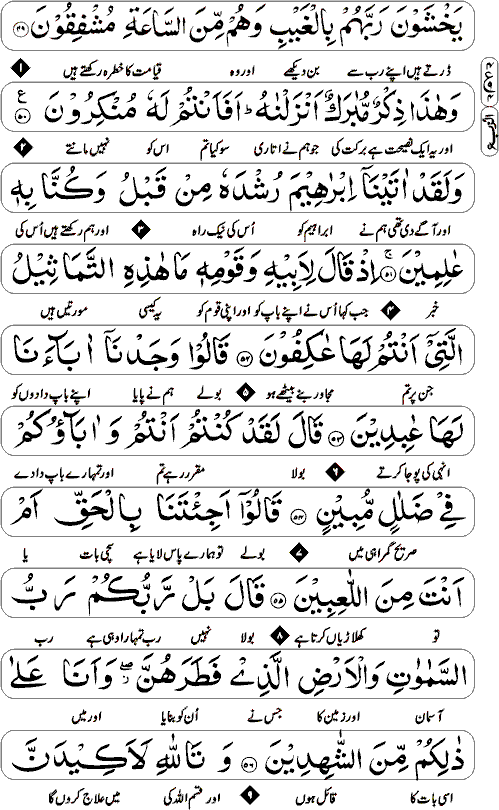 يَخْشَوْنَ رَبَّهُمْ بِالْغَيْبِ وَهُمْ مِّنَ السَّاعَةِ مُشْفِقُوْنَ ﴿۴۹﴾
ڈرتے ہیں اپنے رب سے بن دیکھے اور وہ قیامت کا خطرہ رکھتے ہیں ۱
وَهٰذَا ذِكْرٌ مُّبٰرَكٌ اَنْزَلْنٰهُ ؕ اَفَاَنْتُمْ لَهٗ مُنْكِرُوْنَ ﴿۵۰﴾ ع
اور یہ ایک نصیحت ہے برکت کی جو ہم نے اتاری سو کیا تم اس کو نہیں مانتے ۲
وَلَقَدْ اٰتَيْنَاۤ اِبْرٰهِيْمَ رُشْدَهٗ مِنْ قَبْلُ وَكُنَّا بِهٖ
اور آگے دی تھی ہم نے ابراہیم کو اُس کی نیک راہ ۳ اور ہم رکھتے ہیں اُس کی
عٰلِمِيْنَ ﴿۵۱﴾ۚ اِذْ قَالَ لِاَبِيْهِ وَقَوْمِهٖ مَا هٰذِهِ التَّمَاثِيْلُ
خبر ۴ جب کہا اُس نے اپنے باپ کو اور اپنی قوم کو یہ کیسی مورتیں ہیں
الَّتِيْۤ اَنْتُمْ لَهَا عٰكِفُوْنَ ﴿۵۲﴾ قَالُوْا وَجَدْنَاۤ اٰبَآءَنَا
جن پر تم مجاور بنے بیٹھے ہو ۵ بولے ہم نے پایا اپنے باپ دادوں کو
لَهَا عٰبِدِيْنَ ﴿۵۳﴾ قَالَ لَقَدْ كُنْتُمْ اَنْتُمْ وَاٰبَآؤُكُمْ
انہی کی پوجا کرتے ۶ بولا مقرر رہے تم اور تمہارے باپ دادے
فِيْ ضَلٰلٍ مُّبِيْنٍ ﴿۵۴﴾ قَالُوْۤا اَجِئْتَنَا بِالْحَقِّ اَمْ
صریح گمراہی میں ۷ بولے تو ہمارے پاس لایا ہے سچی بات یا
اَنْتَ مِنَ اللّٰعِبِيْنَ ﴿۵۵﴾ قَالَ بَلْ رَّبُّكُمْ رَبُّ
تو کھلاڑیاں کرتا ہے ۸ بولا نہیں رب تمہارا وہی ہے رب
السَّمٰوٰتِ وَالْاَرْضِ الَّذِيْ فَطَرَهُنَّ ۖ وَاَنَا عَلٰى
آسمان اور زمین کا جس نے اُن کو بنایا اور میں
ذٰلِكُمْ مِّنَ الشّٰهِدِيْنَ ﴿۵۶﴾ وَ تَاللّٰهِ لَاَكِيْدَنَّ
اسی بات کا قائل ہوں ۹ اور قسم اللہ کی میں علاج کروں گا